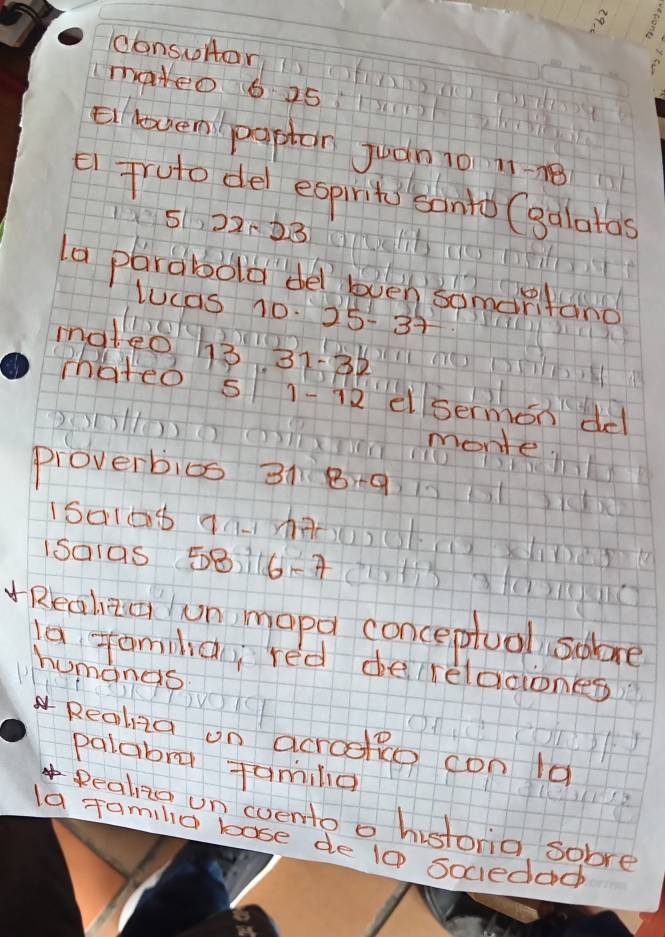 consultar
mateo 6 25
El buen paptor juan 10 11-18
El fruto del espiritu santo (galatas
5 22-23
la parabola del buen samaritano
lucas 10. 25-37
mateo 13 31-32
mateo 5 1-12 el sermón del
monte
proverbios 31 8-9
isaias 1-17
isaias 58 6-7
Realiza un mapa conceptual sobore
la familia, red de relaciones
humanas
Realiza un acrostico con la
palabra familia
Realiza un cuento o historia sobre
la familia base de la sociedad